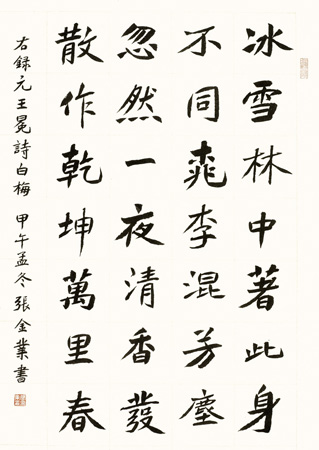 冰雪林中著此身
不同桃李混芳塵
忽然一夜清香發
散作乾坤萬里春
右錄元王冕詩白梅 甲午孟冬張金業書